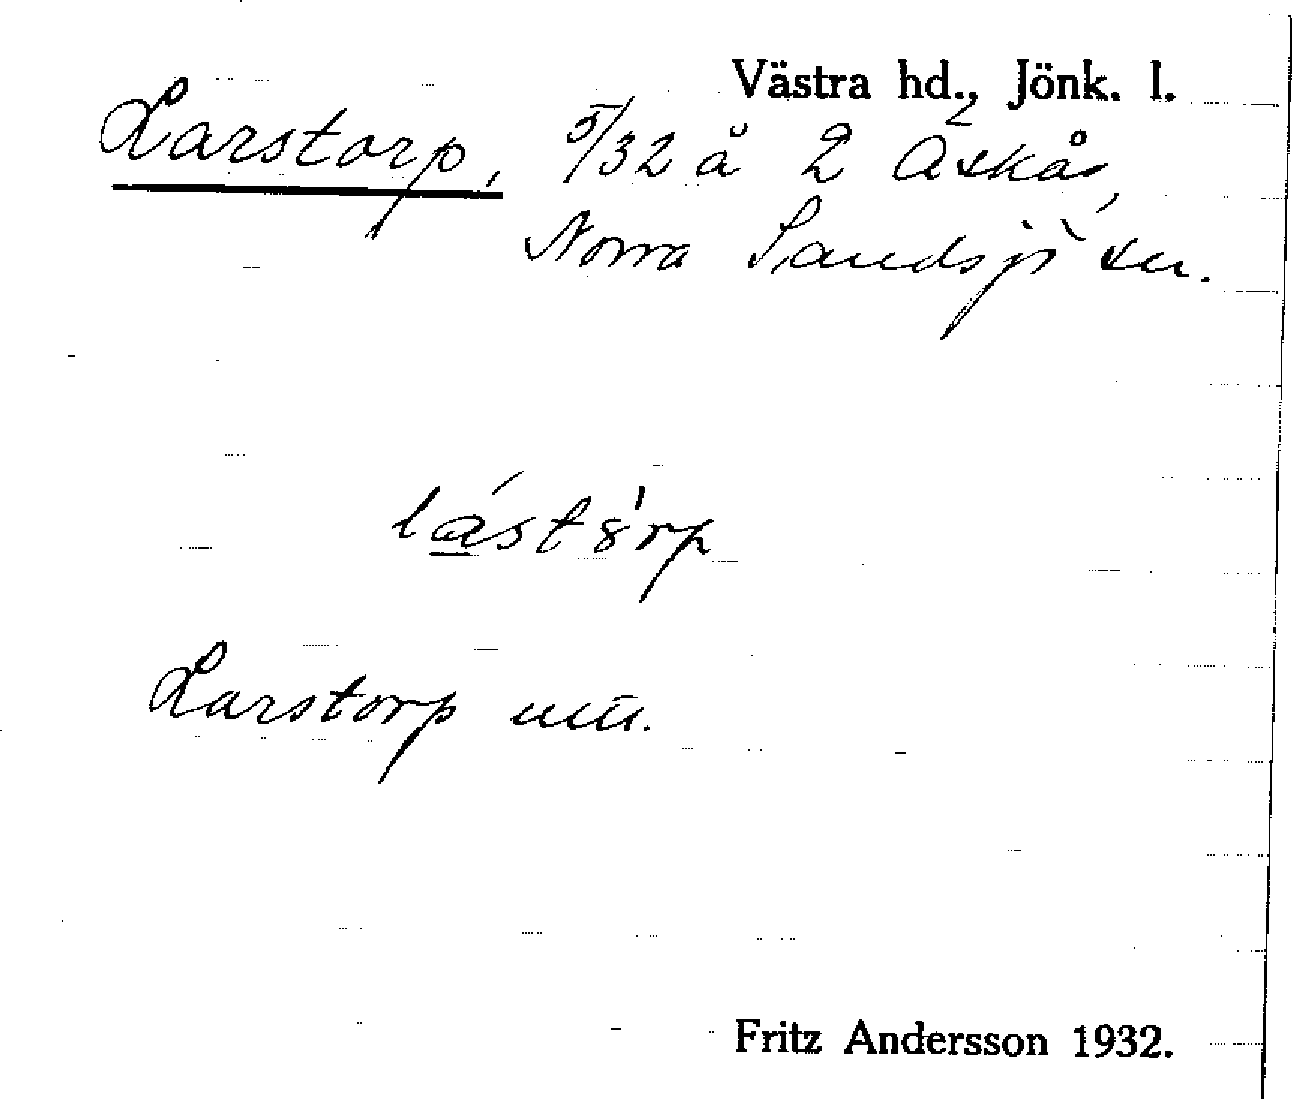 Västra hd., Jönk. l.
Larstorp, 5/32 å 2 Äskås,
Norra Sandsjö sn.
lástòrp
Larstorp
Fritz Andersson 1932.